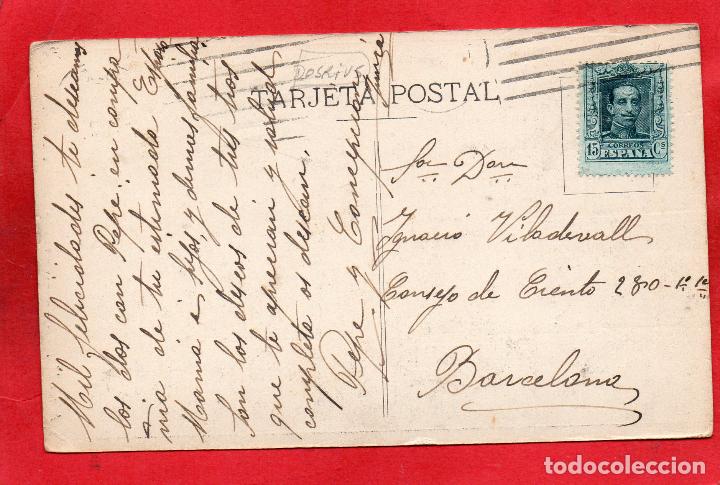 DOSRIUS
TARJETA POSTAL
CORREOS
15 Cs
ESPAÑA
Mil felicidades te deseamos
los dos con Pepe, en compa
ñia de tu estimada Esposa
Mamá e hijos, y demas familia
Son los deseos de tus tios
que te aprecian y salud
completa os desean,
Pepe y Concepción
Sor Don
Ignacio Viladevall
Consejo de Ciento 280-1º 1ª
Barcelona
todocoleccion
todocoleccion.net